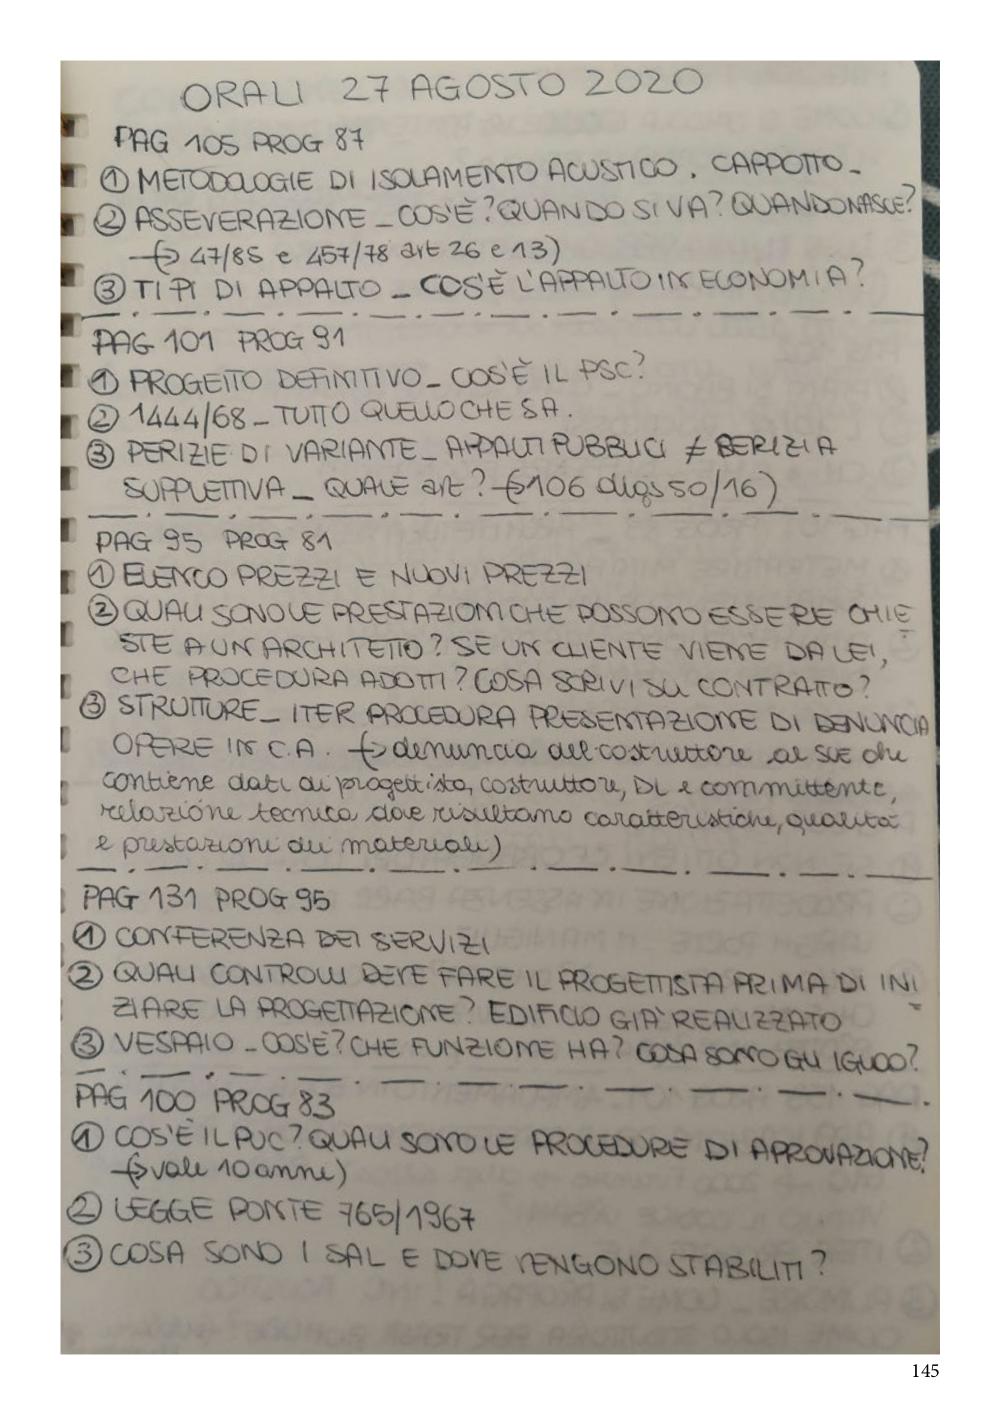 ORALI 27 AGOSTO 2020
PAG 105 PROG 87
① METODOLOGIE DI ISOLAMENTO ACUSTICO. CAPPOTTO_
② ASSEVERAZIONE _ COS'È? QUANDO SI VA? QUANDO NASCE?
(→ 47/85 e 457/78 art 26 e 13)
③ TIPI DI APPALTO _ COS'È L'APPALTO IN ECONOMIA?
PAG 101 PROG 91
① PROGETTO DEFINITIVO_ COS'È IL PSC?
② 1444/68_ TUTTO QUELLO CHE SA.
③ PERIZIE DI VARIANTE_ APPALTI PUBBLICI ≠ PERIZIA
SUPPLETTIVA _ QUALE art? (→106 dlgs 50/16)
PAG 95 PROG 81
① ELENCO PREZZI E NUOVI PREZZI
② QUALI SONO LE PRESTAZIONI CHE POSSONO ESSERE CHIE
STE A UN ARCHITETTO? SE UN CLIENTE VIENE DA LEI,
CHE PROCEDURA ADOTTI? COSA SCRIVI SU CONTRATTO?
③ STRUTTURE_ ITER PROCEDURA PRESENTAZIONE DI DENUNCIA
OPERE IN C.A. (→ denuncia del costruttore al SUE che
contiene dati di progettista, costruttore, DL e committente,
relazione tecnica dove risultano caratteristiche, qualità
e prestazioni dei materiali)
PAG 131 PROG 95
① CONFERENZA DEI SERVIZI
② QUALI CONTROLLI DEVE FARE IL PROGETTISTA PRIMA DI INI
ZIARE LA PROGETTAZIONE? EDIFICIO GIÀ REALIZZATO
③ VESPAIO _ COS'È? CHE FUNZIONE HA? COSA SONO GLI IGLOO?
PAG 100 PROG 83
① COS'È IL PUC? QUALI SONO LE PROCEDURE DI APROVAZIONE?
(→ vale 10 anni)
② LEGGE PONTE 765/1967
③ COSA SONO I SAL E DOVE VENGONO STABILITI?
145